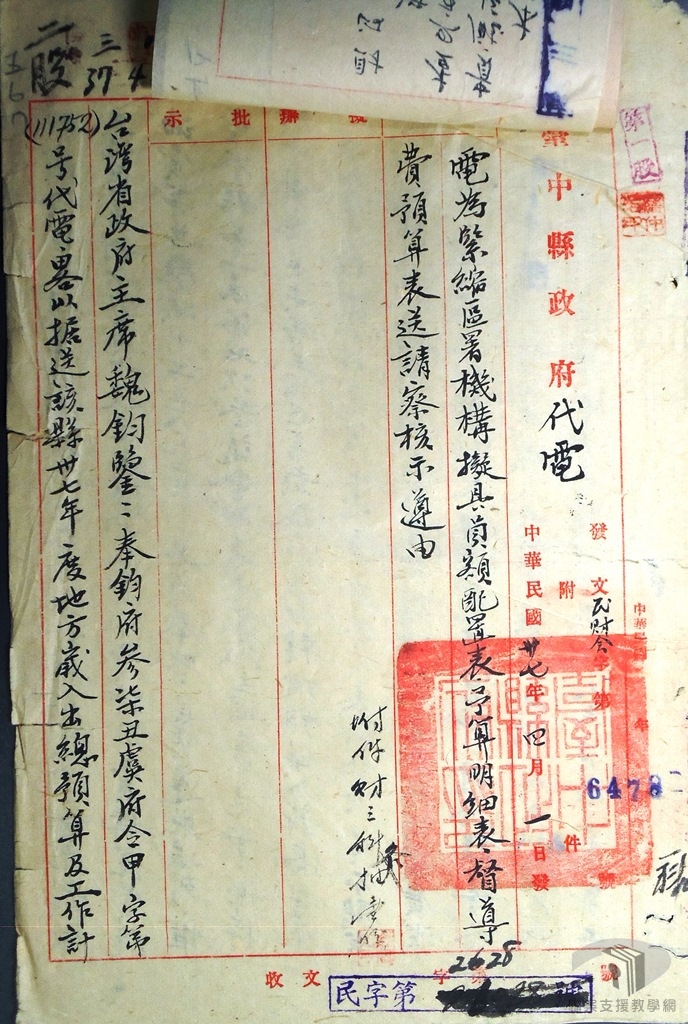 第一股
臺中縣政府代電
發文民財会字第6478號
附件
中華民國卅七年四月一日發
電為緊縮區署機構擬具員額配置表予算明細表督導
費預算表送請察核示遵由
擬辦
批示
附件財三
收文字第2628號
民字第
台灣省政府主席魏鈞鑒：奉鈞府參柒丑虞府令甲字第
(111752)号代電畧以据送該縣卅七年度地方歲入出總預算及工作計
二股
三
37 4